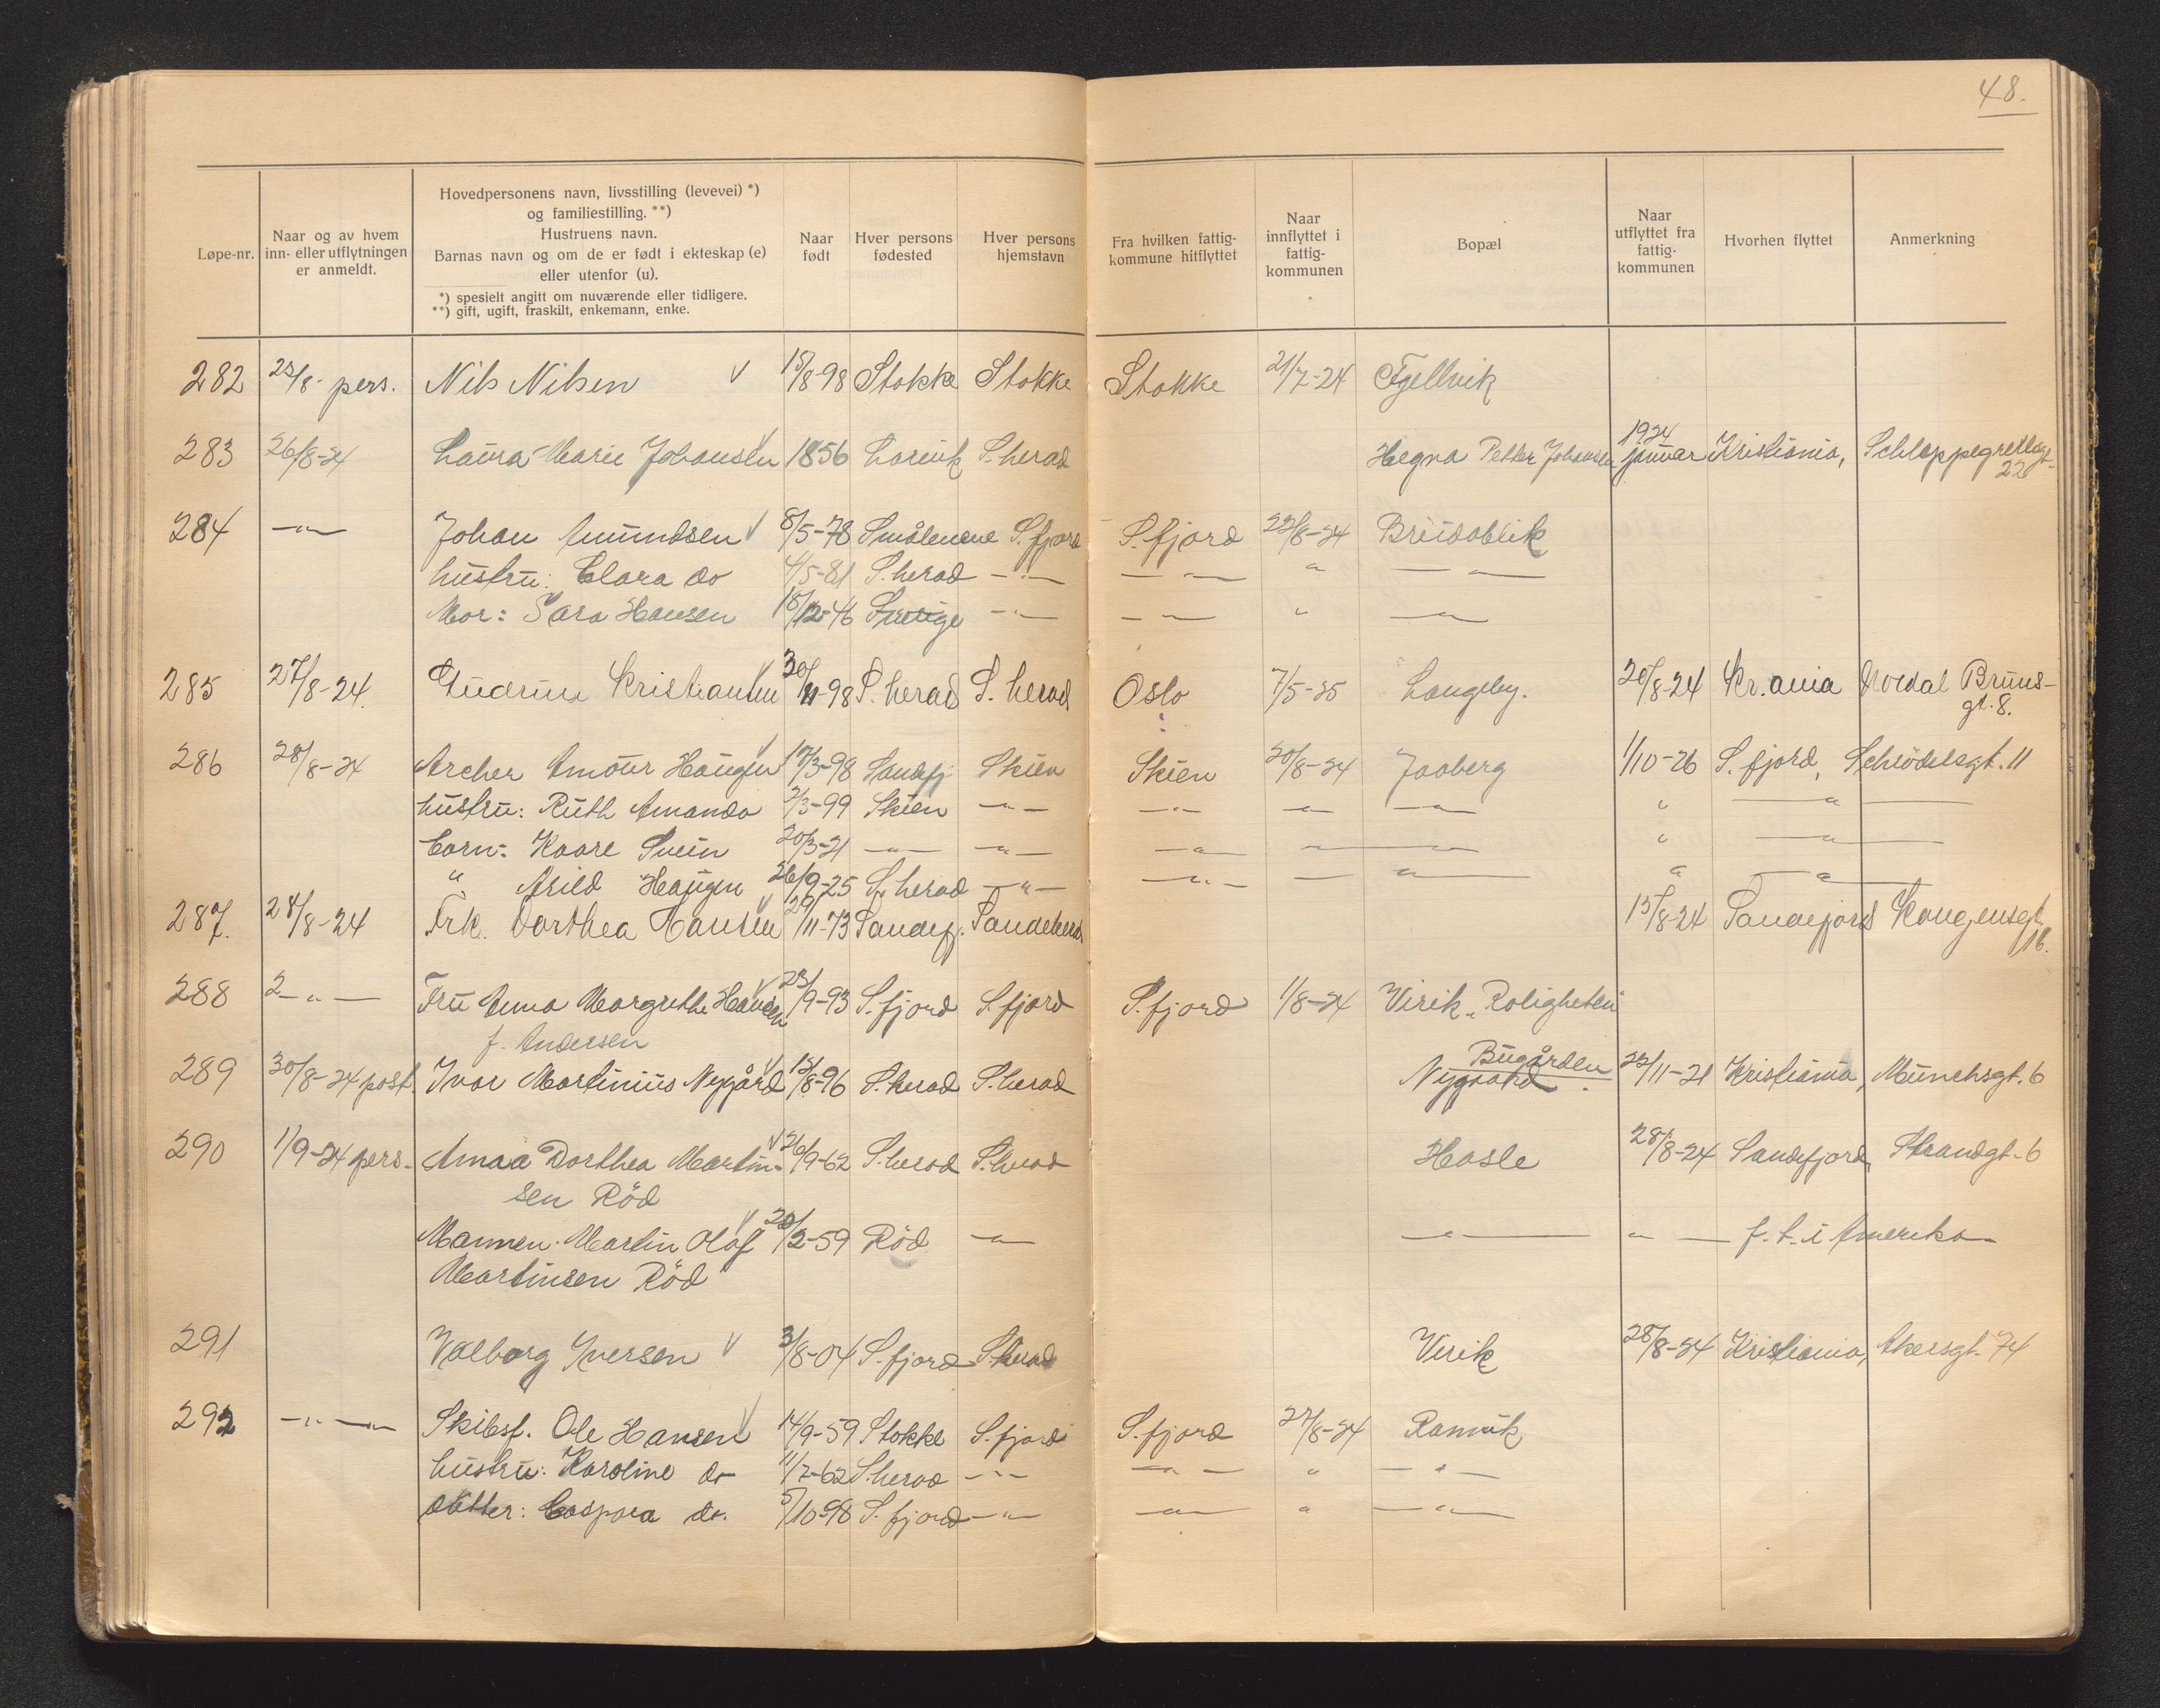 48.
Løpe-nr.
Naar og av hvem
inn- eller utflytningen
er anmeldt.
Hovedpersonens navn, livsstilling (levevei) *)
og familiestilling. **)
Hustruens navn.
Barnas navn og om de er født i ekteskap (e)
eller utenfor (u).
*) spesielt angitt om nuværende eller tidligere.
**) gift, ugift, fraskilt, enkemann, enke.
Naar
født
Hver persons
fødested
Hver persons
hjemstavn
Fra hvilken fattig-
kommune hitflyttet
Naar
innflyttet i
fattig-
kommunen
Bopæl
Naar
utflyttet fra
fattig-
kommunen
Hvorhen flyttet
Anmerkning
282 25/8- pers. Nils Nilsen 15/8-98 Stokke Stokke Stokke 21/7-24 Fjellvik
283 26/8-24 Laura Marie Johansen 1856 Larvik S.herad Hegna Petter Johansen 1924 januar Kristiania, Schleppegrellsgt. 22
284 -"- Johan Amundsen 8/5-78 Smålenene S.fjord S.fjord 22/8-24 Breidablik
hustru: Clara do 4/5-81 S.herad -"- -"- " -"-
Mor: Sara Hansen 18/12-46 Sverige -"- -"- " -"-
285 27/8-24. Gudrun Kristiansen 30/11-98 S.herad S.herad Oslo 7/5-25 Langeby. 20/8-24 Kr.ania Arendal Bruns-
gt. 8.
286 28/8-24 Archer Amour Haugen 17/3-98 Sandefj. Skien Skien 20/8-24 Jaaberg 1/10-26 S.fjord, Schrödelsgt. 11
hustru: Ruth Amanda 2/3-99 Skien -"- -"- -"- -"- " -"-
barn: Kaare Svein 20/3-21 -"- -"- -"- -"- " -"-
" Arild Haugen 26/9-25 S.herad -"- -"- -"- " -"-
287. 28/8-24 Frk. Dorthea Hansen 29/11-73 Sandefj. Sandeherad 15/8-24 Sandefjord Kongensgt.
16.
288 2 -"- Fru Anna Margrethe Hansen 23/9-93 S.fjord S.fjord S.fjord 1/8-24 Virik "Roligheten"
f. Andersen
289 30/8-24 post. Ivar Martinius Nygård 13/8-96 S.herad S.herad Bugården
Nygaard. 22/11-21 Kristiania, Munchsgt. 6
290 1/9-24 pers. Anna Dorthea Martin- 26/9-62 S.herad S.herad Hasle 28/8-24 Sandefjord, Strandgt. 6
sen Röd
Mannen. Martin Olaf 20/2-59 Röd -"- -"- " - f.t. i Amerika
Martinsen Röd
291 Valborg Iversen 3/8-04 S.fjord S.herad Virik 28/8-24 Kristiania, Akersgt. 74
292 -"- Skibsf. Ole Hansen 14/9-59 Stokke S.fjord S.fjord 27/8-24 Ranvik
hustru: Karoline do 11/7-62 S.herad -"- -"- " -"-
datter: Caspara do. 5/10-98 S.fjord -"- -"- " -"-